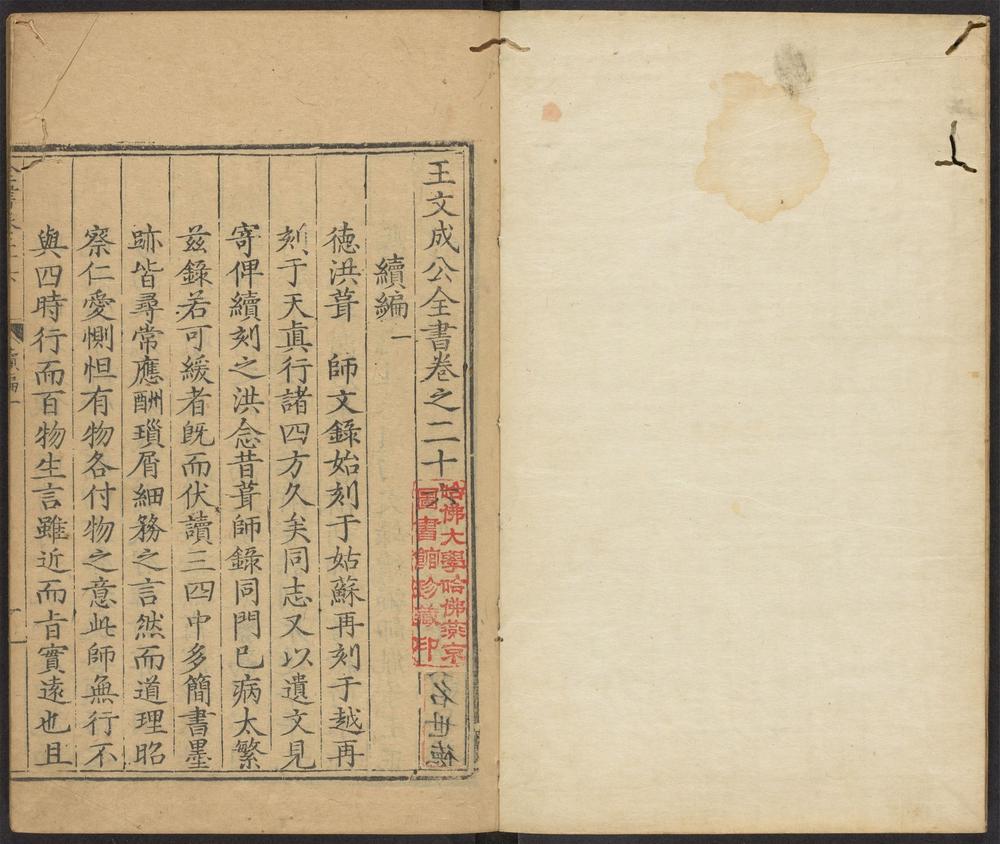 王文成公全書卷之二十六
續編一
德洪葺　師文錄始刻于姑蘇再刻于越再
刻于天眞行諸四方久矣同志又以遺文見
寄俾續刻之洪念昔葺師錄同門已病太繁
茲錄若可緩者旣而伏讀三四中多簡書墨
跡皆尋常應酬瑣屑細務之言然而道理昭
察仁愛惻怛有物各付物之意此師無行不
與四時行而百物生言雖近而旨實遠也且
哈佛大學哈佛燕京
圖書館珍藏印
續編一